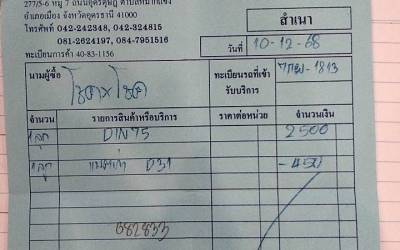 277/5-6 หมู่ 7 ถนนอุดรดุษฎี ตำบลหมากแข้ง
อำเภอเมือง จังหวัดอุดรธานี 41000
โทรศัพท์ 042-242348, 042-324815
081-2624197, 084-7951516
ทะเบียนการค้า 40-83-1156
สำเนา
วันที่ 10-12-68
นามผู้ซื้อ โชควาโชค
ทะเบียนรถที่เข้ารับบริการ 1813
จำนวน รายการสินค้าหรือบริการ ราคาต่อหน่วย จำนวนเงิน
1 ลูก DIN 75 2500
1 ลูก แบตเก่า D31 -450
682833